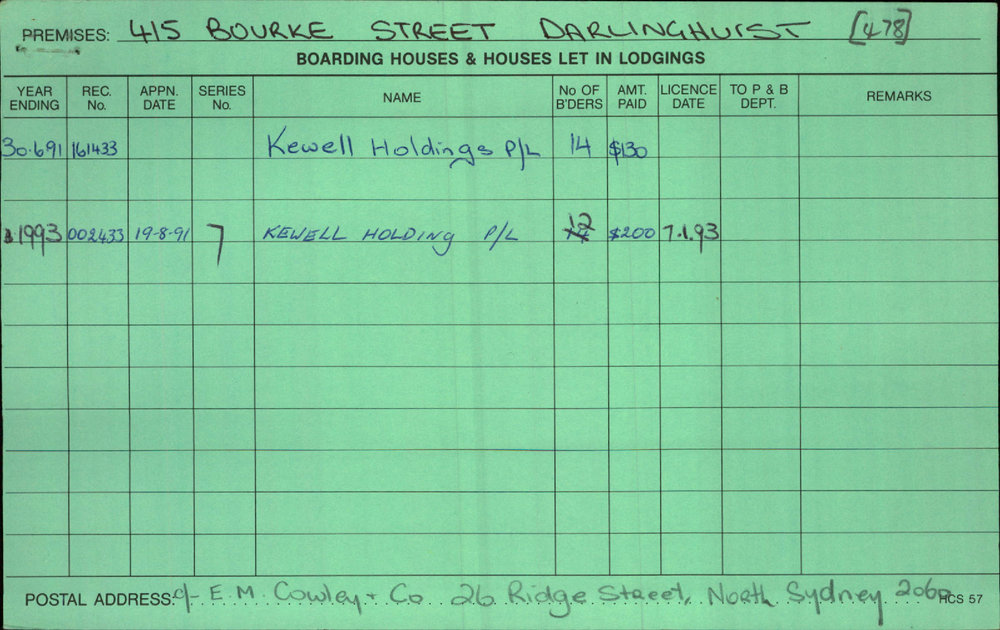 PREMISES: 415 BOURKE STREET DARLINGHURST [478]
BOARDING HOUSES & HOUSES LET IN LODGINGS
YEAR ENDING REC. No. APPN. DATE SERIES No. NAME No OF B'DERS AMT. PAID LICENCE DATE TO P & B DEPT. REMARKS
30.691 161433 Kewell Holdings P/L 14 $130
1993 002433 19-8-91 7 KEWELL HOLDING P/L 12 14 $200 7.1.93
POSTAL ADDRESS: c/- E.M. Cowley + Co 26 Ridge Street, North Sydney 2060 HCS 57